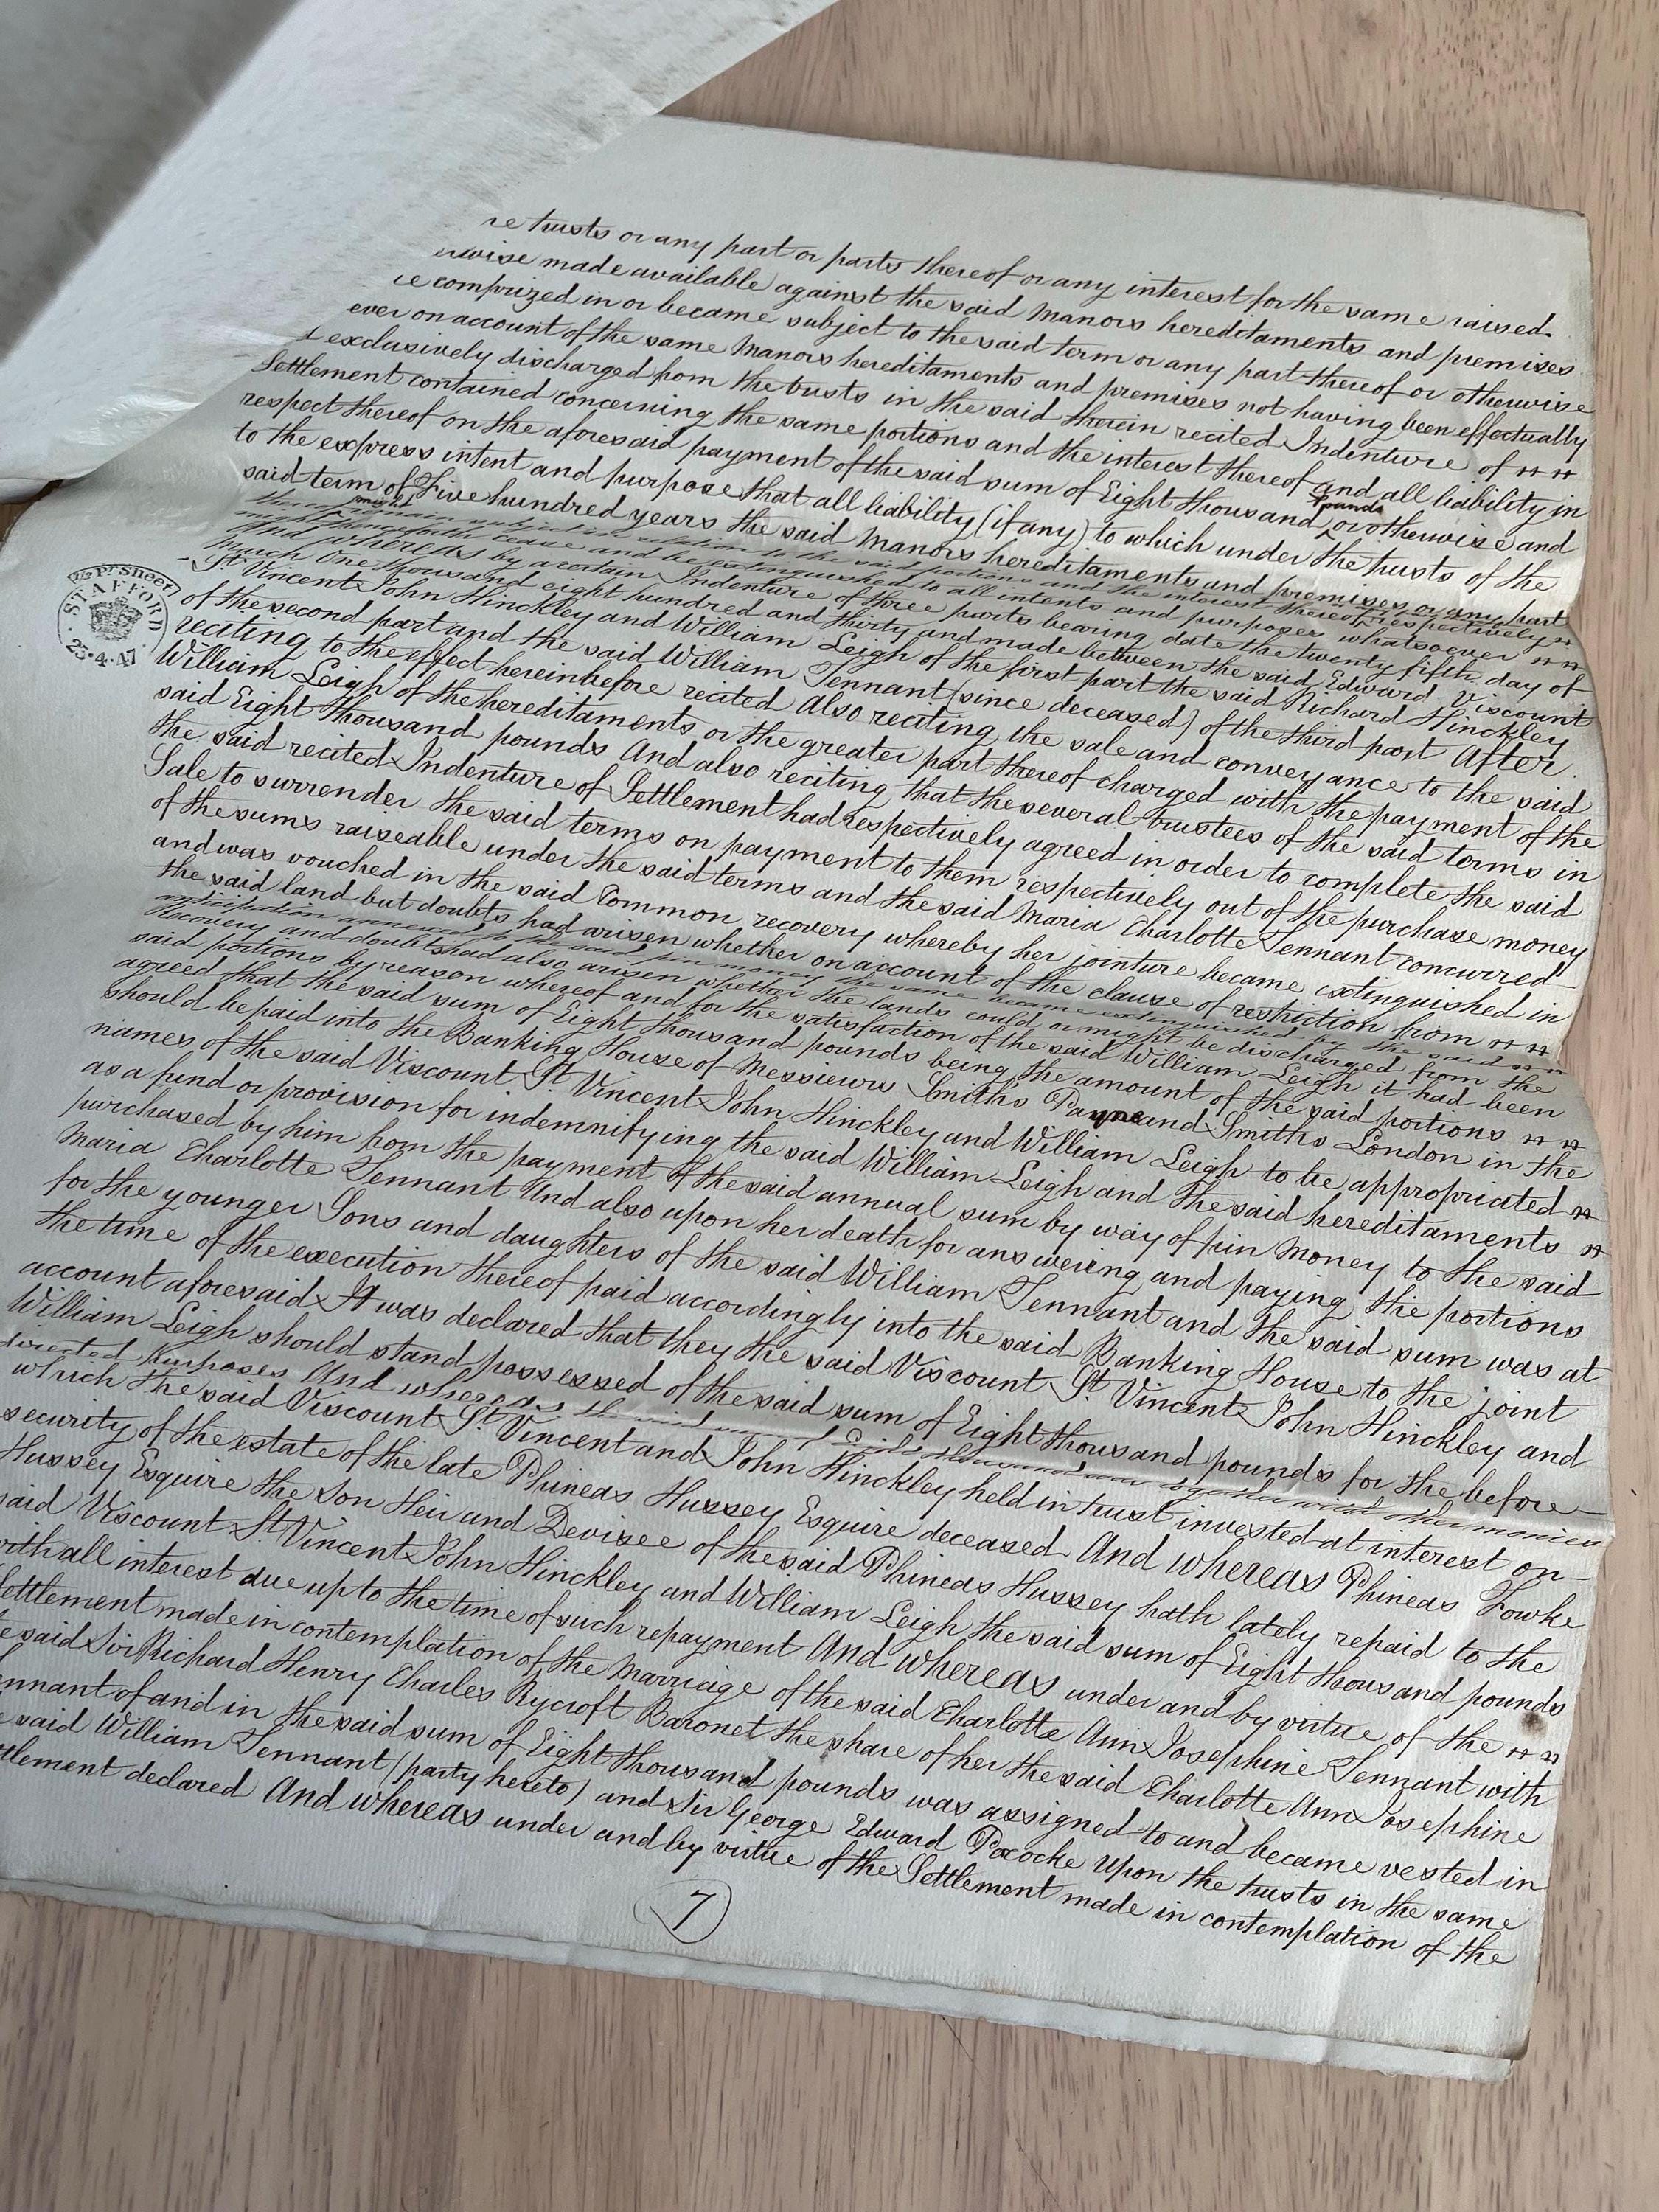 trusts or any part or parts thereof or any interest for the same raised
made available against the said Manors hereditaments and premises
comprized in or became subject to the said term or any part thereof or otherwise
ever on account of the same Manors hereditaments and premises not having been effectually
exclusively discharged from the trusts in the said therein recited Indenture of
Settlement contained concerning the same portions and the interest thereof and all liability in
respect thereof on the aforesaid payment of the said sum of Eight thousand pounds or otherwise and
to the express intent and purpose that all liability (if any) to which under the trusts of the
said term of Five hundred years the said Manors hereditaments and premises or any part
thereof might remain subject in relation to the said portions and the interest thereof respectively
might henceforth cease and be extinguished to all intents and purposes whatsoever
And whereas by a certain Indenture of three parts bearing date the twenty fifth day of
March One thousand eight hundred and thirty and made between the said Edward Viscount
St. Vincent John Hinckley and William Leigh of the first part the said Richard Hinckley
of the second part and the said William Tennant (since deceased) of the third part After
reciting to the effect hereinbefore recited Also reciting the sale and conveyance to the said
William Leigh of the hereditaments or the greater part thereof charged with the payment of the
said Eight thousand pounds And also reciting that the several trustees of the said terms in
the said recited Indenture of Settlement had respectively agreed in order to complete the said
Sale to surrender the said terms on payment to them respectively out of the purchase money
of the sums raiseable under the said terms and the said Maria Charlotte Tennant concurred
and was vouched in the said Common recovery whereby her jointure became extinguished in
the said land but doubts had arisen whether on account of the clause of restriction from
anticipation annexed to the said pin money the same became extinguished by the said
Recovery and doubts had also arisen whether the lands could or might be discharged from the
said portions by reason whereof and for the satisfaction of the said William Leigh it had been
agreed that the said sum of Eight thousand pounds being the amount of the said portions
should be paid into the Banking House of Messieurs Smiths Payne and Smiths London in the
names of the said Viscount St Vincent John Hinckley and William Leigh to be appropriated
as a fund or provision for indemnifying the said William Leigh and the said hereditaments
purchased by him from the payment of the said annual sum by way of pin Money to the said
Maria Charlotte Tennant And also upon her death for answering and paying the portions
for the younger Sons and daughters of the said William Tennant and the said sum was at
the time of the execution thereof paid accordingly into the said Banking House to the joint
account aforesaid It was declared that they the said Viscount St Vincent John Hinckley and
William Leigh should stand possessed of the said sum of Eight thousand pounds for the before
directed purposes And whereas the said sum of Eight thousand was together with other monies
which the said Viscount St Vincent and John Hinckley held in trust invested at interest on
security of the estate of the late Phineas Hussey Esquire deceased And whereas Phineas Fowke
Hussey Esquire the Son Heir and Devisee of the said Phineas Hussey hath lately repaid to the
said Viscount St. Vincent John Hinckley and William Leigh the said sum of Eight thousand pounds
with all interest due up to the time of such repayment And whereas under and by virtue of the
Settlement made in contemplation of the Marriage of the said Charlotte Ann Josephine Tennant with
the said Sir Richard Henry Charles Rycroft Baronet the share of her the said Charlotte Ann Josephine
Tennant of and in the said sum of Eight thousand pounds was assigned to and became vested in
the said William Tennant (party hereto) and Sir George Edward Pococke Upon the trusts in the same
Settlement declared And whereas under and by virtue of the Settlement made in contemplation of the
7
Sheet
STAFFORD
23.4.47